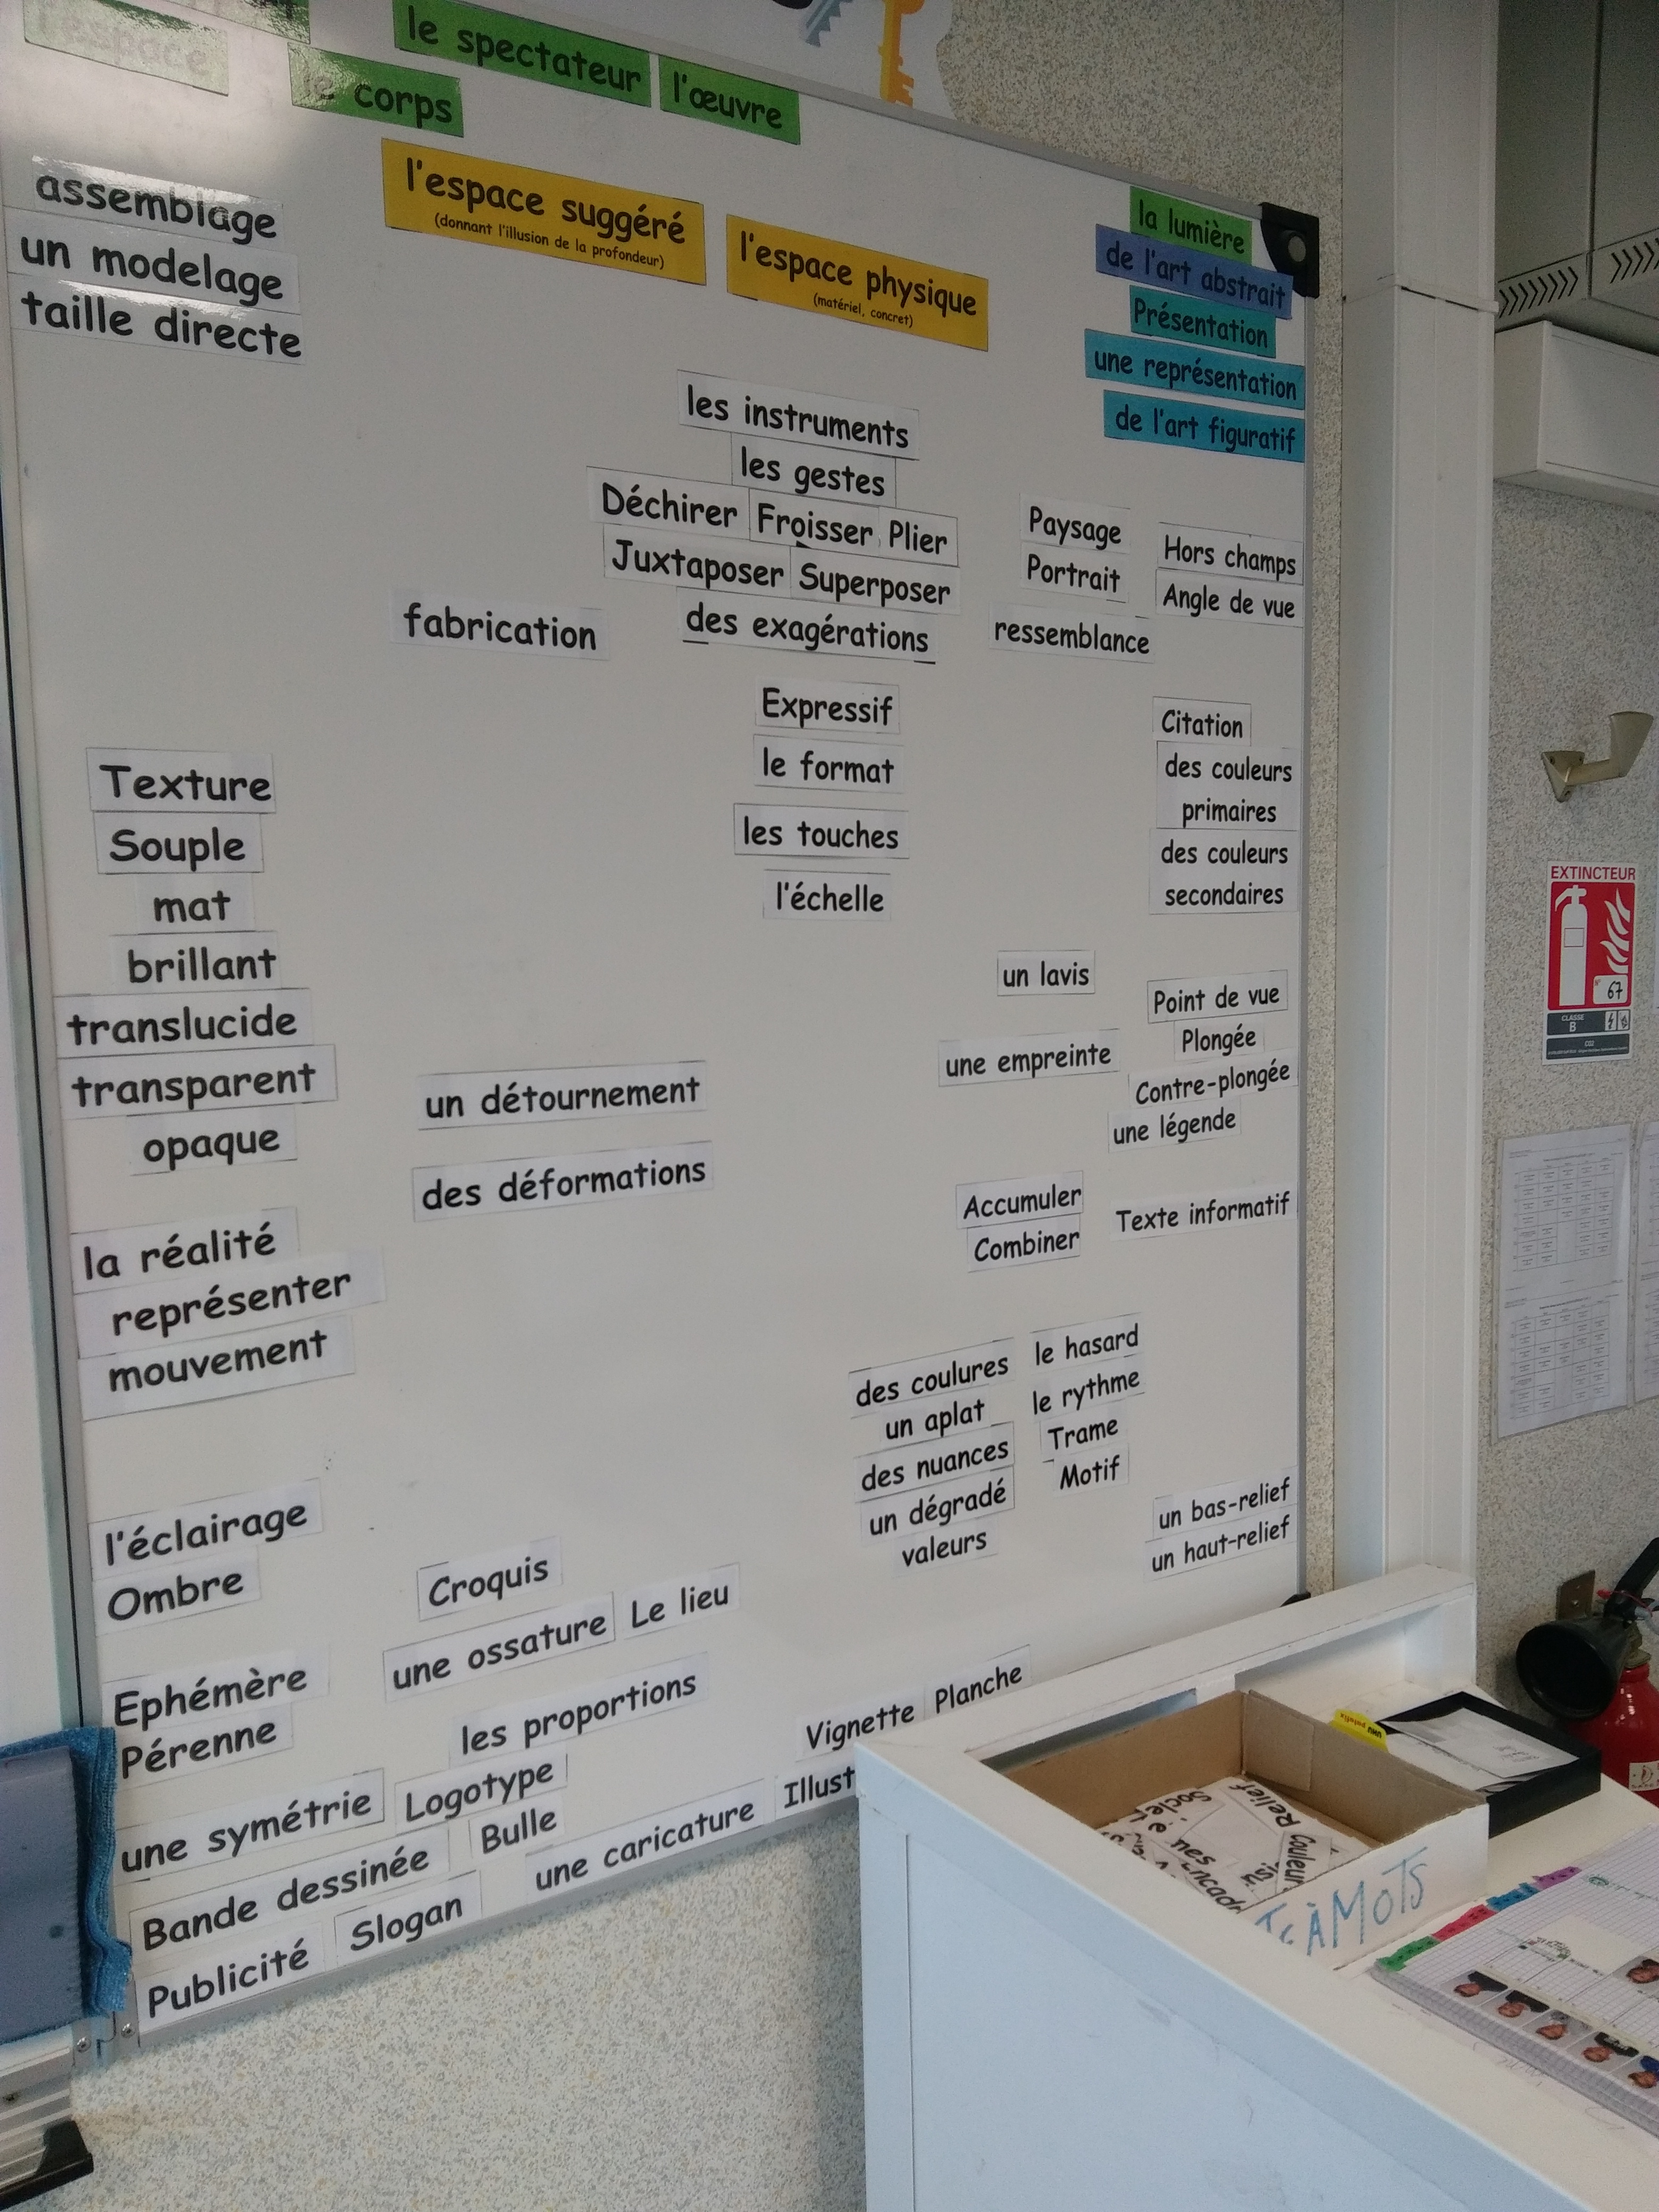 l'espace
le corps
le spectateur
l'œuvre
assemblage
un modelage
taille directe
l'espace suggéré
(donnant l'illusion de la profondeur)
l'espace physique
(matériel, concret)
la lumière
de l'art abstrait
Présentation
une représentation
de l'art figuratif
les instruments
les gestes
Déchirer Froisser Plier
Juxtaposer Superposer
des exagérations
fabrication
Paysage
Portrait
ressemblance
Hors champs
Angle de vue
Expressif
le format
les touches
l'échelle
Citation
des couleurs
primaires
des couleurs
secondaires
Texture
Souple
mat
brillant
translucide
transparent
opaque
un détournement
des déformations
un lavis
une empreinte
Point de vue
Plongée
Contre-plongée
une légende
Accumuler
Combiner
Texte informatif
la réalité
représenter
mouvement
des coulures
un aplat
des nuances
un dégradé
valeurs
le hasard
le rythme
Trame
Motif
un bas-relief
un haut-relief
l'éclairage
Ombre
Croquis
une ossature Le lieu
les proportions
Ephémère
Pérenne
Vignette Planche
une symétrie Logotype
Bande dessinée Bulle
une caricature Illust
Publicité Slogan
EXTINCTEUR
67
CLASSE
B
Relief
Socle
Couleur
À MOTS